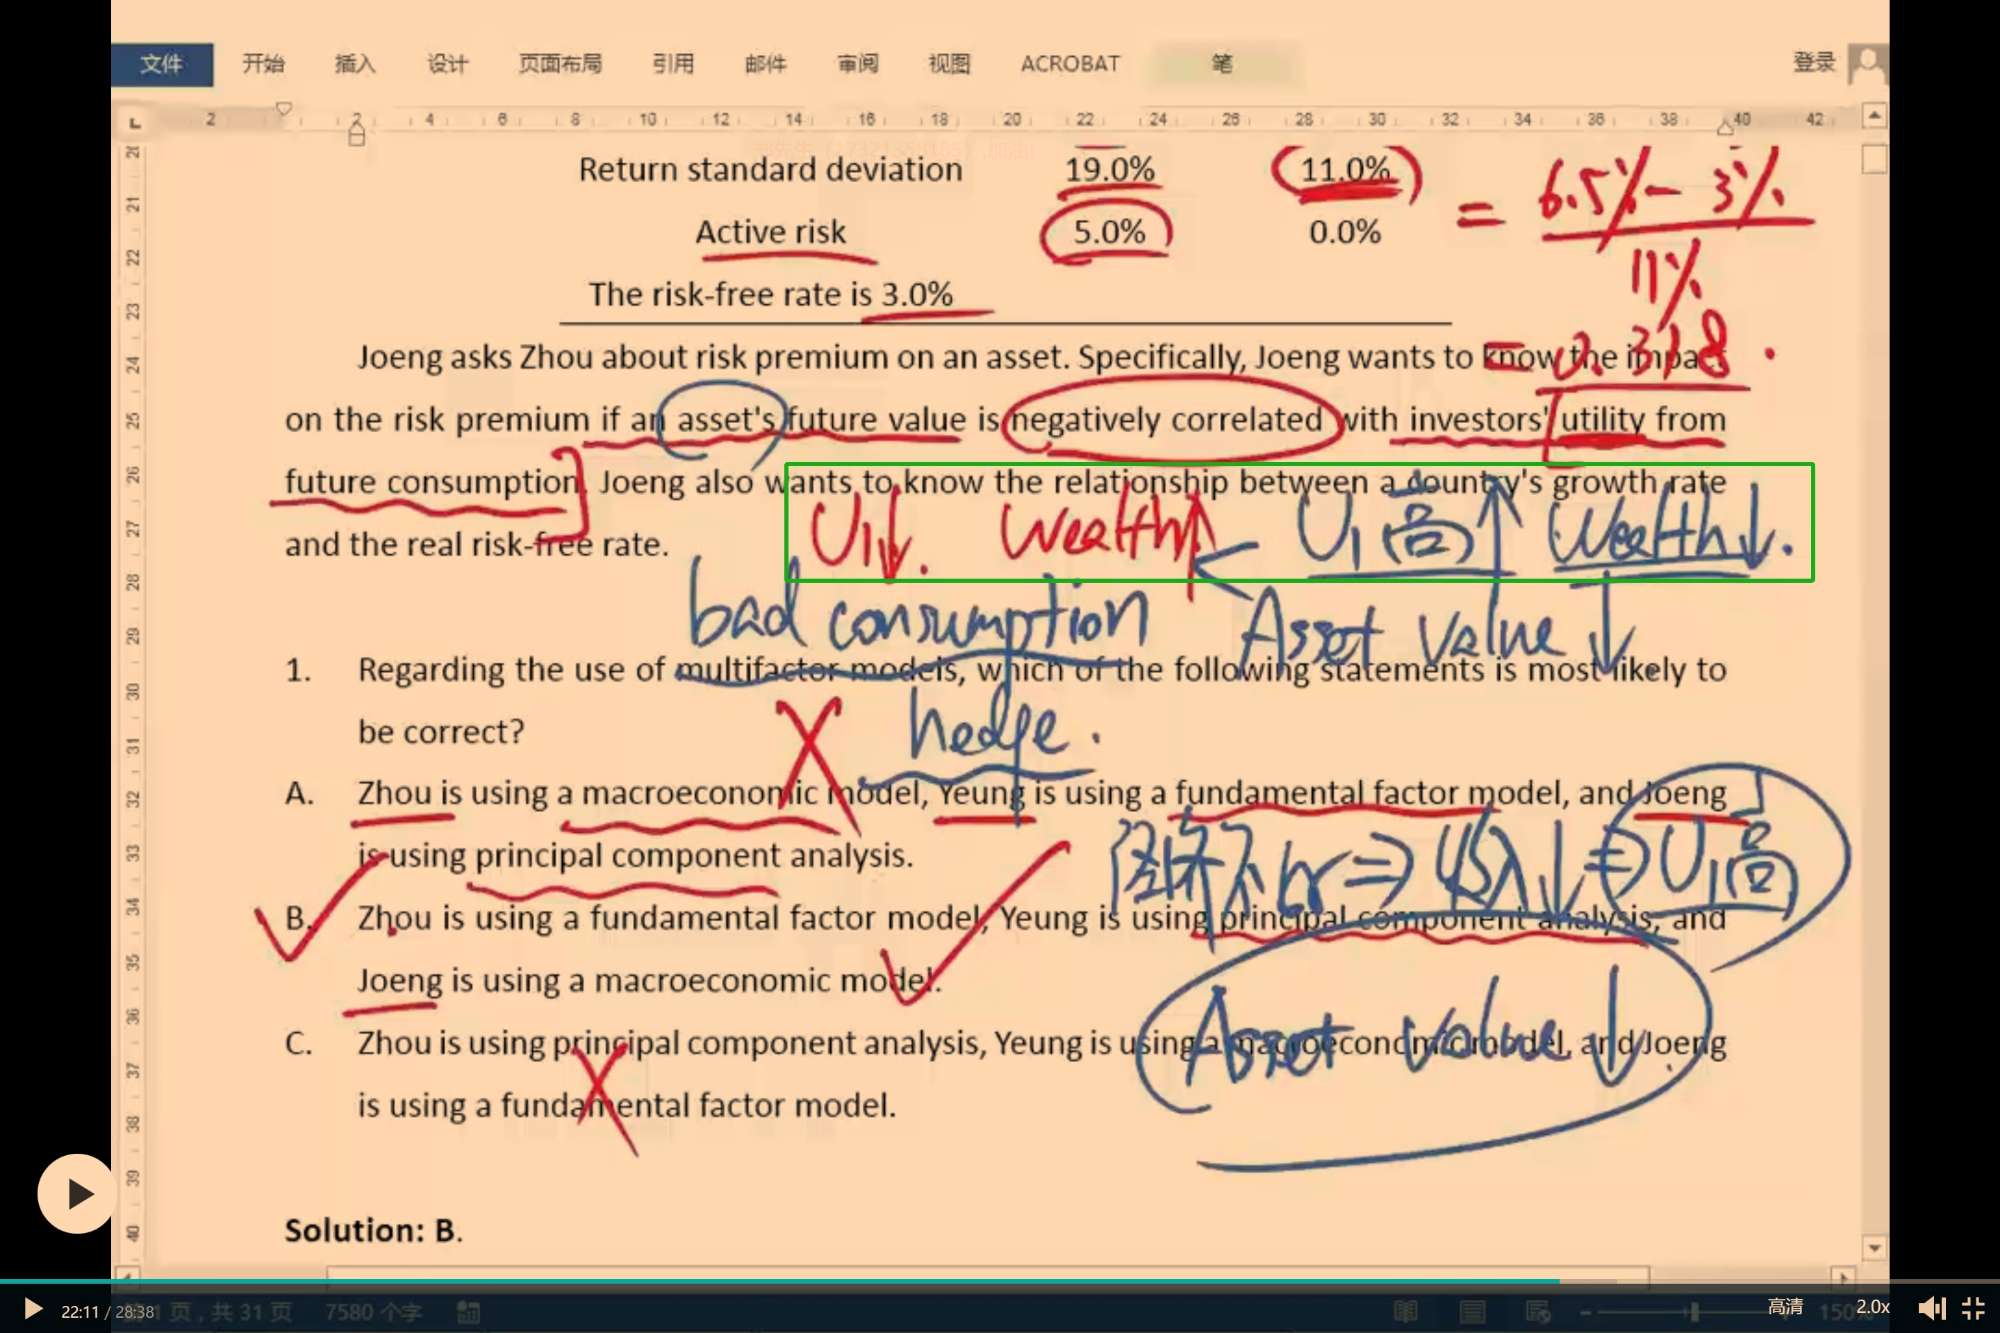 文件 开始 插入 设计 页面布局 引用 邮件 审阅 视图 ACROBAT 笔 登录
2 2 4 6 8 10 12 14 16 18 20 22 24 26 28 30 32 34 36 38 40 42
Return standard deviation 19.0% 11.0%
= 6.5% - 3%
11%
Active risk 5.0% 0.0%
The risk-free rate is 3.0%
= 0.318.
Joeng asks Zhou about risk premium on an asset. Specifically, Joeng wants to know the impact
on the risk premium if an asset's future value is negatively correlated with investors' utility from
future consumption. Joeng also wants to know the relationship between a country's growth rate
U1↓. Wealth↑ U1(高)↑ Wealth↓.
and the real risk-free rate.
bad consumption Asset value↓
hedge.
1. Regarding the use of multifactor models, which of the following statements is most likely to
be correct?
A. Zhou is using a macroeconomic model, Yeung is using a fundamental factor model, and Joeng
is using principal component analysis.
经济不好⇒收入↓⇒U1高
B. Zhou is using a fundamental factor model, Yeung is using principal component analysis, and
Joeng is using a macroeconomic model.
Asset value↓
C. Zhou is using principal component analysis, Yeung is using a macroeconomic model, and Joeng
is using a fundamental factor model.
Solution: B.
22:11 / 28:38 页，共 31 页 7580 个字 高清 2.0x 150%